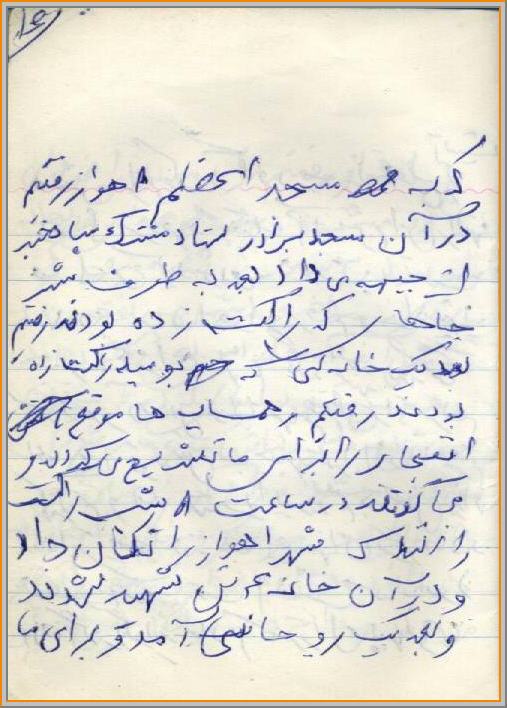 که به مسجد اعظم اهواز رفتیم
در آن مسجد برادر ستاد مشترک سپاه خبر
از جبهه می داد بعد به طرف شهر
جاهای که راکت زده بودند رفتیم
بعد یک خانه که راکت زده
بودند رفتیم همسایه ها موقع
انفجار را برای ما تشریح می کردند و
می گفتند در ساعت ۸ شب راکت
شهر اهواز را تکان داد
و در آن خانه ۳ تن شهید شدند
و بعد یک روحانی آمد و برای ما